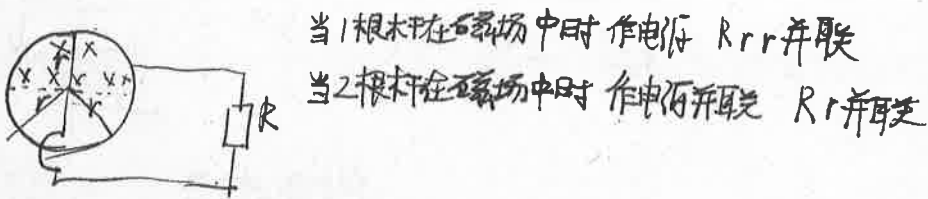 当1根杆在磁场中时 作电源 R r r并联
当2根杆在磁场中时 作电源并联 R r并联
x x
r
x x r x r
r r
R